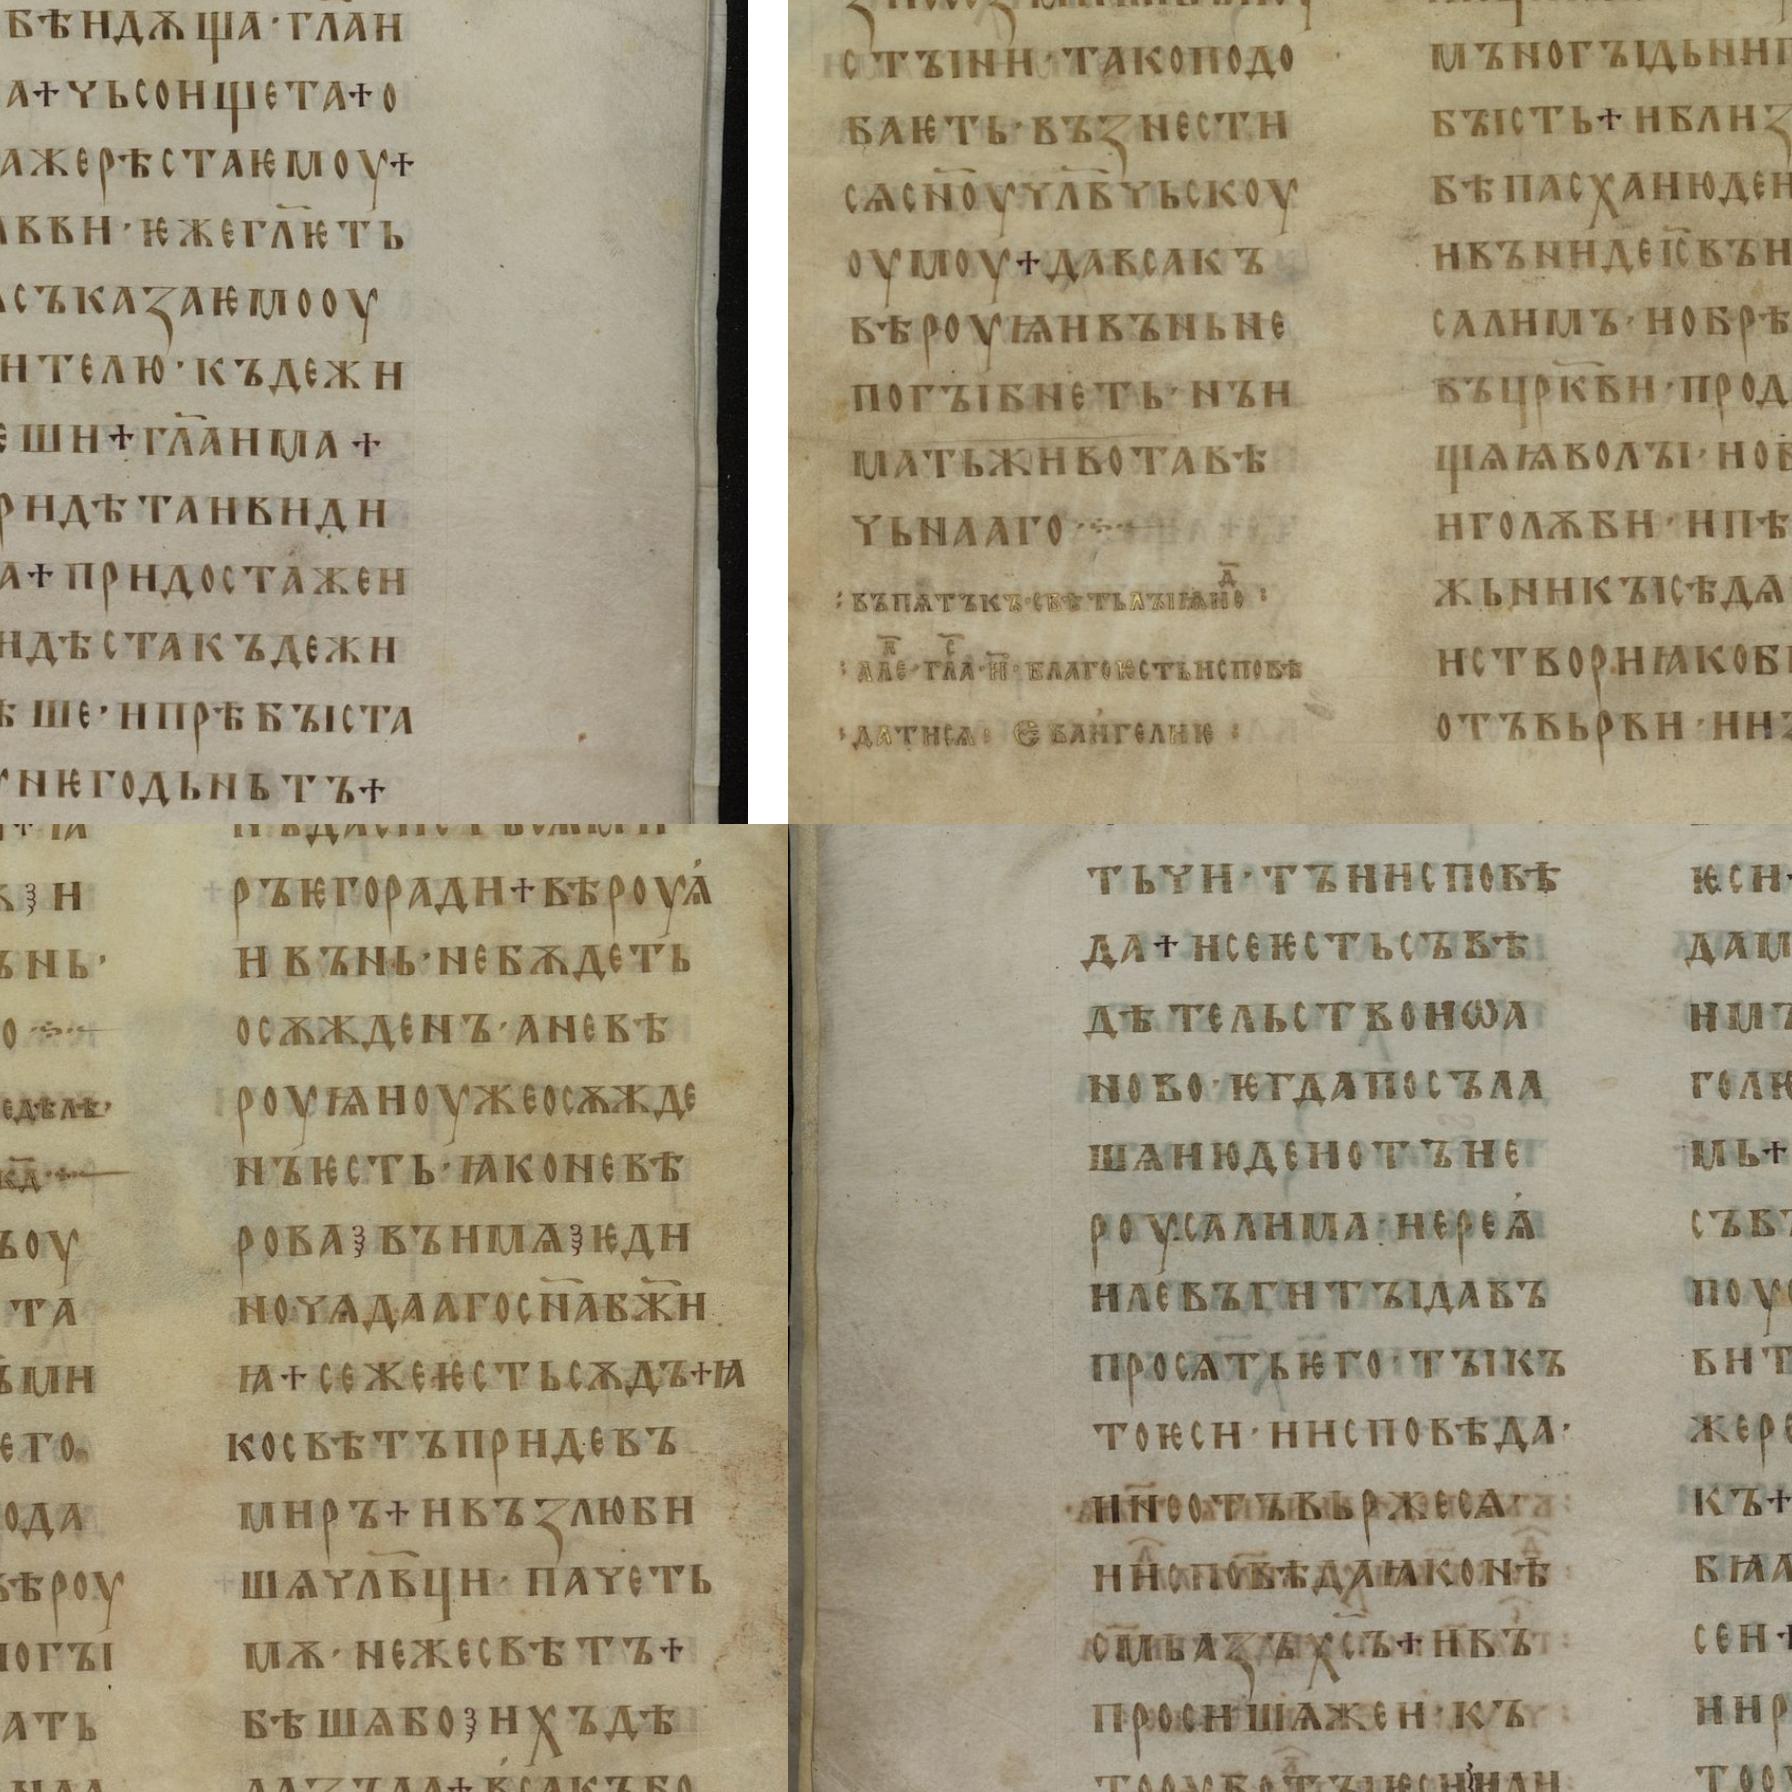 БѢ НДѪЩА · ГЛ҃АН
А + ЧЬСОНЩЕТА + О
АЖЕРѢСТАѤМОУ +
АВВН · ѤЖЕГЛ҃ѤТЬ
СЪКАЗАѤМООУ
НТЕЛЮ · КЪДЕЖН
ЕШН + ГЛ҃АНМА +
РНДѢТАНВНДН
А + ПРНДОСТАЖЕН
НДѢСТАКЪДЕЖН
ШЕ · НПРѢБЪІСТА
НѤГОДЬНЬТЪ +
СТЪІНН · ТАКОПОДО
БАѤТЬ · ВЪЗНЕСТН
СѦСН҃ОУЧЛ҃ВЧЬСКОУ
ОУМОУ + ДАВСАКЪ
ВѢРОУѨНВЪНЬНЕ
ПОГЪІБНЕТЬ · НЪН
МАТЬЖНВОТАВѢ
ЧЬНААГО
: ВЪПѦТЪКЪ · СВѢТЬЛЪІѨНО :
: АЛЕ · ГЛА · Н · БЛАГОѤСТЬНСПОВѢ
: ДАТНСѦ : ЕВАНГЕЛНѤ :
МЪНОГЪІДЬННП
БЪІСТЬ + НБЛНЗ
БѢПАСХАНЮДЕН
НВЪННДЕІС҃ВЪН
САЛНМЪ · НОБРѢ
ВЪЦРК҃ВН · ПРОД
ЩѦѨВОЛЪІ · НОВ
НГОЛѪБН · НПѢ
ЖЬННКЪІСѢДѦ
НСТВОРНꙖКОБ
ОТЪВЬРВН · НН
ЗН
ЪНЬ ·
О
ЕДѢЛѢ ·
КД
ЬОУ
ТА
МН
ЕГО
ОДА
ВѢРОУ
НОГЪІ
АТЬ
РЪѤГОРАДН + ВѢРОУѦ
НВЪНЬ · НЕБѪДЕТЬ
ОСѪЖДЕНЪ · АНЕВѢ
РОУѨНОУЖЕОСѪЖДЕ
НЪѤСТЬ · ꙖКОНЕВѢ
РОВА ꙁ ВЪНМѦ ꙁ ѤДН
НОЧѦДААГОСН҃АБЖ҃Н
Ꙗ + СЕЖЕѤСТЬСѪДЪ + Ꙗ
КОСВѢТЪПРНДЕВЪ
МНРЪ + НВЪЗЛЮБН
ШѦЧЛ҃ВЦН · ПАЧЕТЬ
МѪ · НЕЖЕСВѢТЪ +
БѢШѦБО ꙁ НХЪДѢ
ТЬЧН · ТЪННСПОВѢ
ДА + НСЕѤСТЬСЪВѢ
ДѢТЕЛЬСТВОНѠА
НОВО · ѤГДАПОСЪЛА
ШѦНЮДЕНОТЪНЕ
РОУСАЛНМА · НЕРЕѦ
НЛЕВЪГНТЪІДАВЪ
ПРОСѦТЬѤГО · ТЪІКЪ
ТОѤСН · ННСПОВѢДА ·
НН҃ЕОТЪВЬРЖЕСѦ
ННСПОВѢДАꙖКОНѢ
СМЬАЗЪХС҃Ъ + НВЪ
ПРОСНШѦЖЕН · КЪ
ѤСН
ДАМ
НМЪ
ГОЛѤ
МЬ +
СЪВ
ПОУ
ВНТ
ЖЕР
КЪ +
ВꙖА
СЕН +
ННР